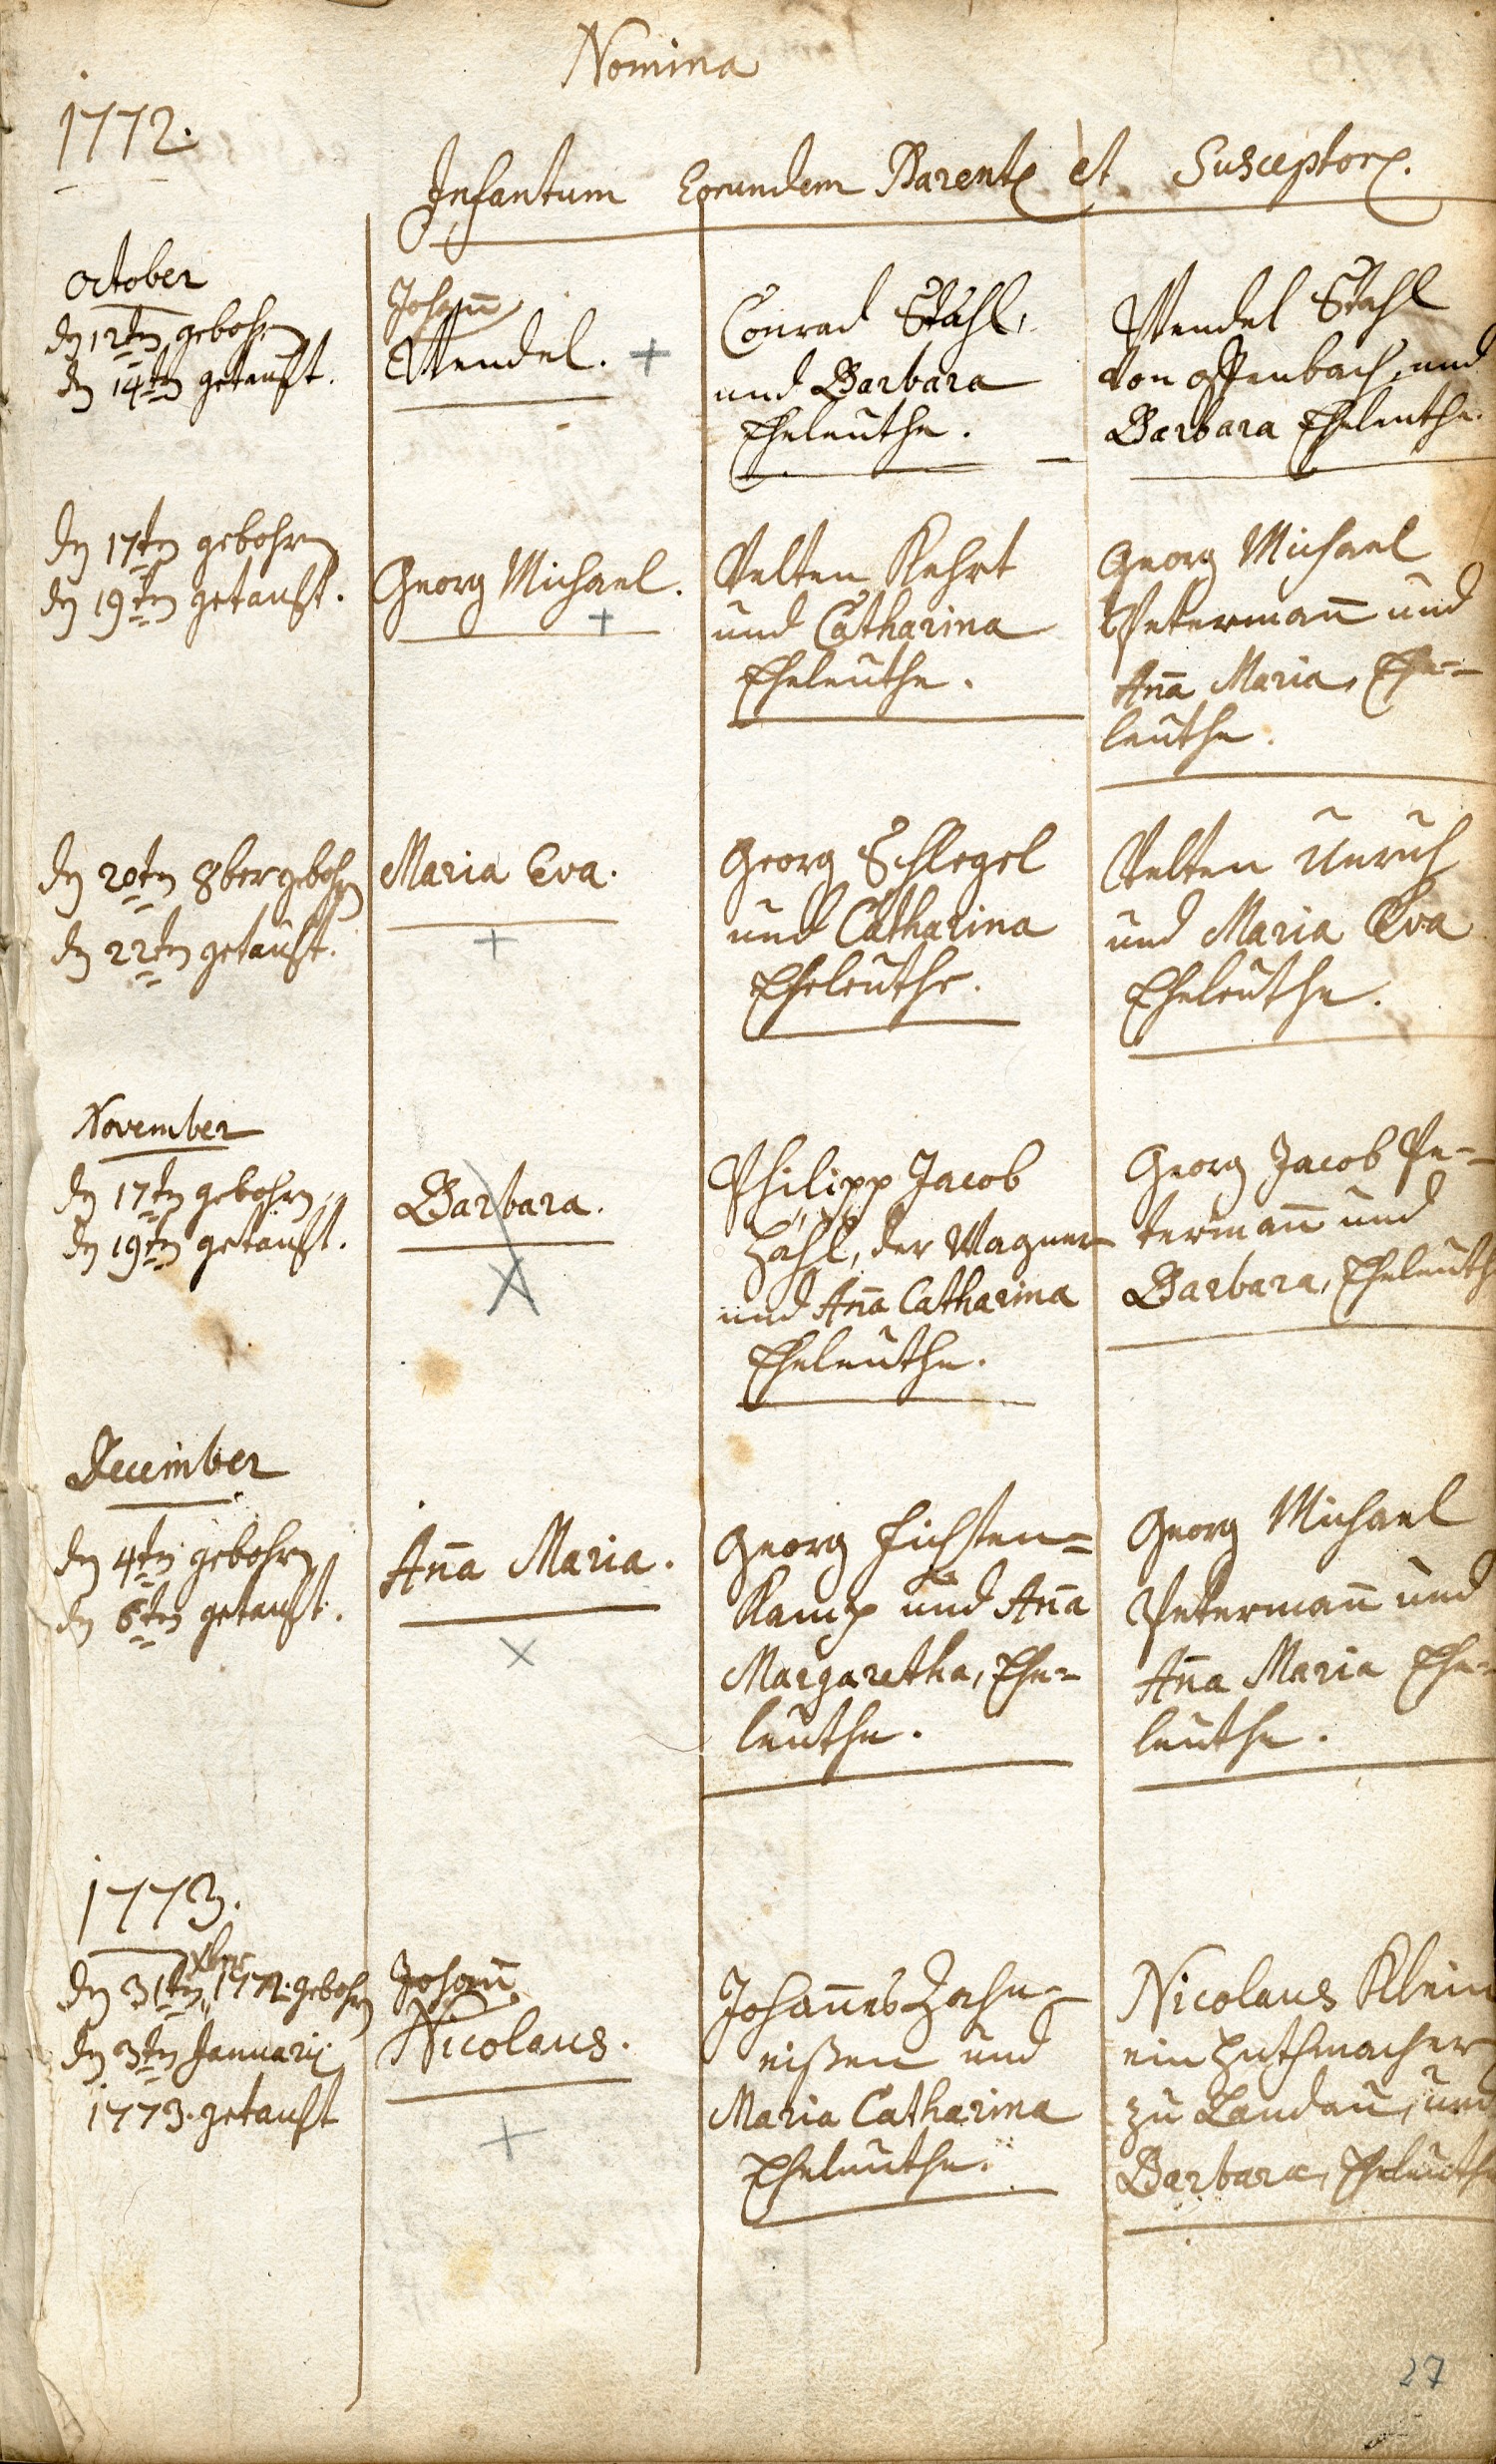 Nomina
1772.
Infantum Eorundem Parent. et Susceptor.
October
dn 12tn gebohrn
dn 14tn getauft.
Johañ
Wendel.
Conrad Stahl,
und Barbara
Eheleuthe.
Wendel Stahl
von Offenbach, und
Barbara Eheleuthe.
dn 17tn gebohrn
dn 19tn getauft.
Georg Michael.
Velten Kehrt
und Catharina
Eheleuthe.
Georg Michael
Petermañ und
Aña Maria, Ehe=
leuthe.
dn 20tn 8ber gebohrn
dn 22tn getauft.
Maria Eva.
Georg Schlegel
und Catharina
Eheleuthe.
Velten Unruh
und Maria Eva
Eheleuthe.
November
dn 17tn gebohrn,
dn 19tn getauft.
Barbara.
Philipp Jacob
der Wagner
und Aña Catharina
Eheleuthe.
Georg Jacob Pe=
termañ und
Barbara, Eheleuth
December
dn 4tn gebohrn
dn 6tn getauft.
Aña Maria.
Georg Fichten=
Kamp und Aña
Margaretha, Ehe=
leuthe.
Georg Michael
Petermañ und
Aña Maria Ehe=
leuthe.
1773.
xbr
dn 31tn 1772. gebohrn
dn 3tn Januarij
1773. getauft
Johañ
Nicolaus.
Johañes Zehn=
eißen und
Maria Catharina
Eheleuthe.
Nicolaus Klein
ein Huthmacher
zu Landau, und
Barbara, Eheleuthe
27